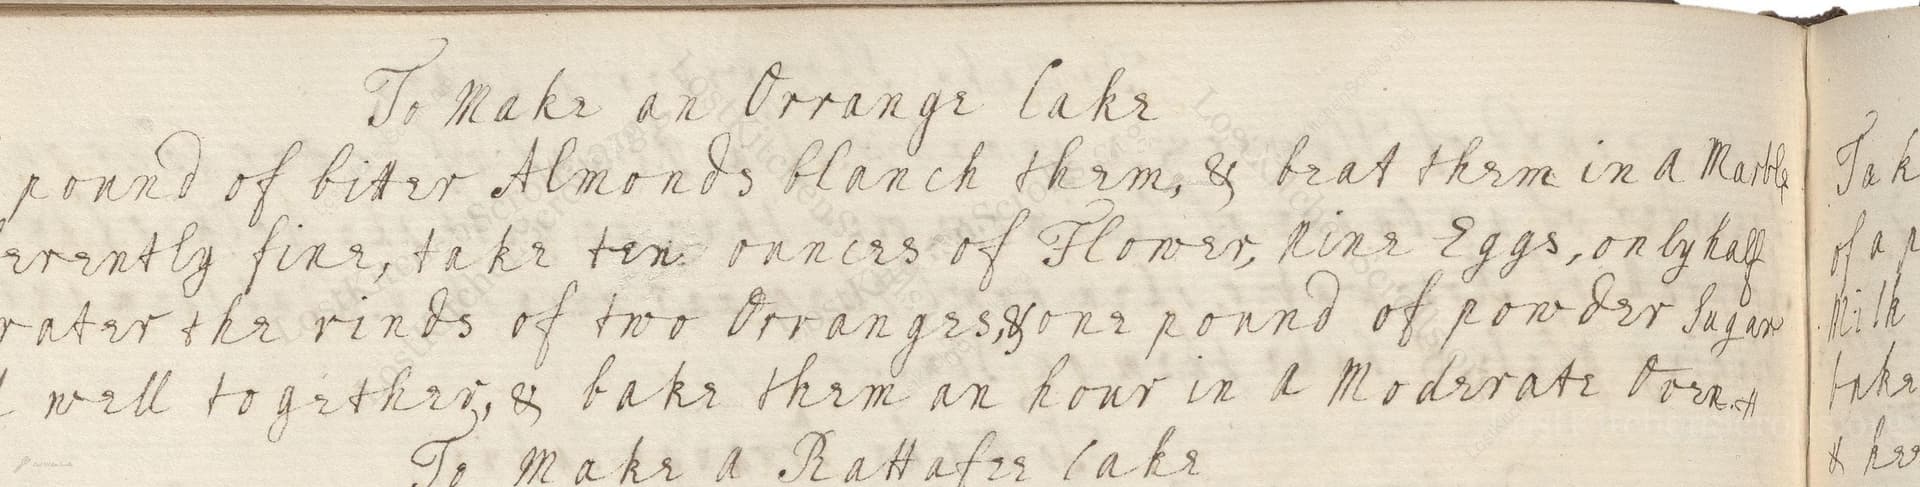 To Make an Orrange Cake
pound of bitter Almonds blanch them, & beat them in a Marble
erently fine, take ten ounces of Flower, Nine Eggs, only half
rater the rinds of two Orranges, & one pound of powder Sugar
well together, & bake them an hour in a Moderate Oven.
To Make a Rattafee Cake
Tak
of a p
Milk
bake
& kee